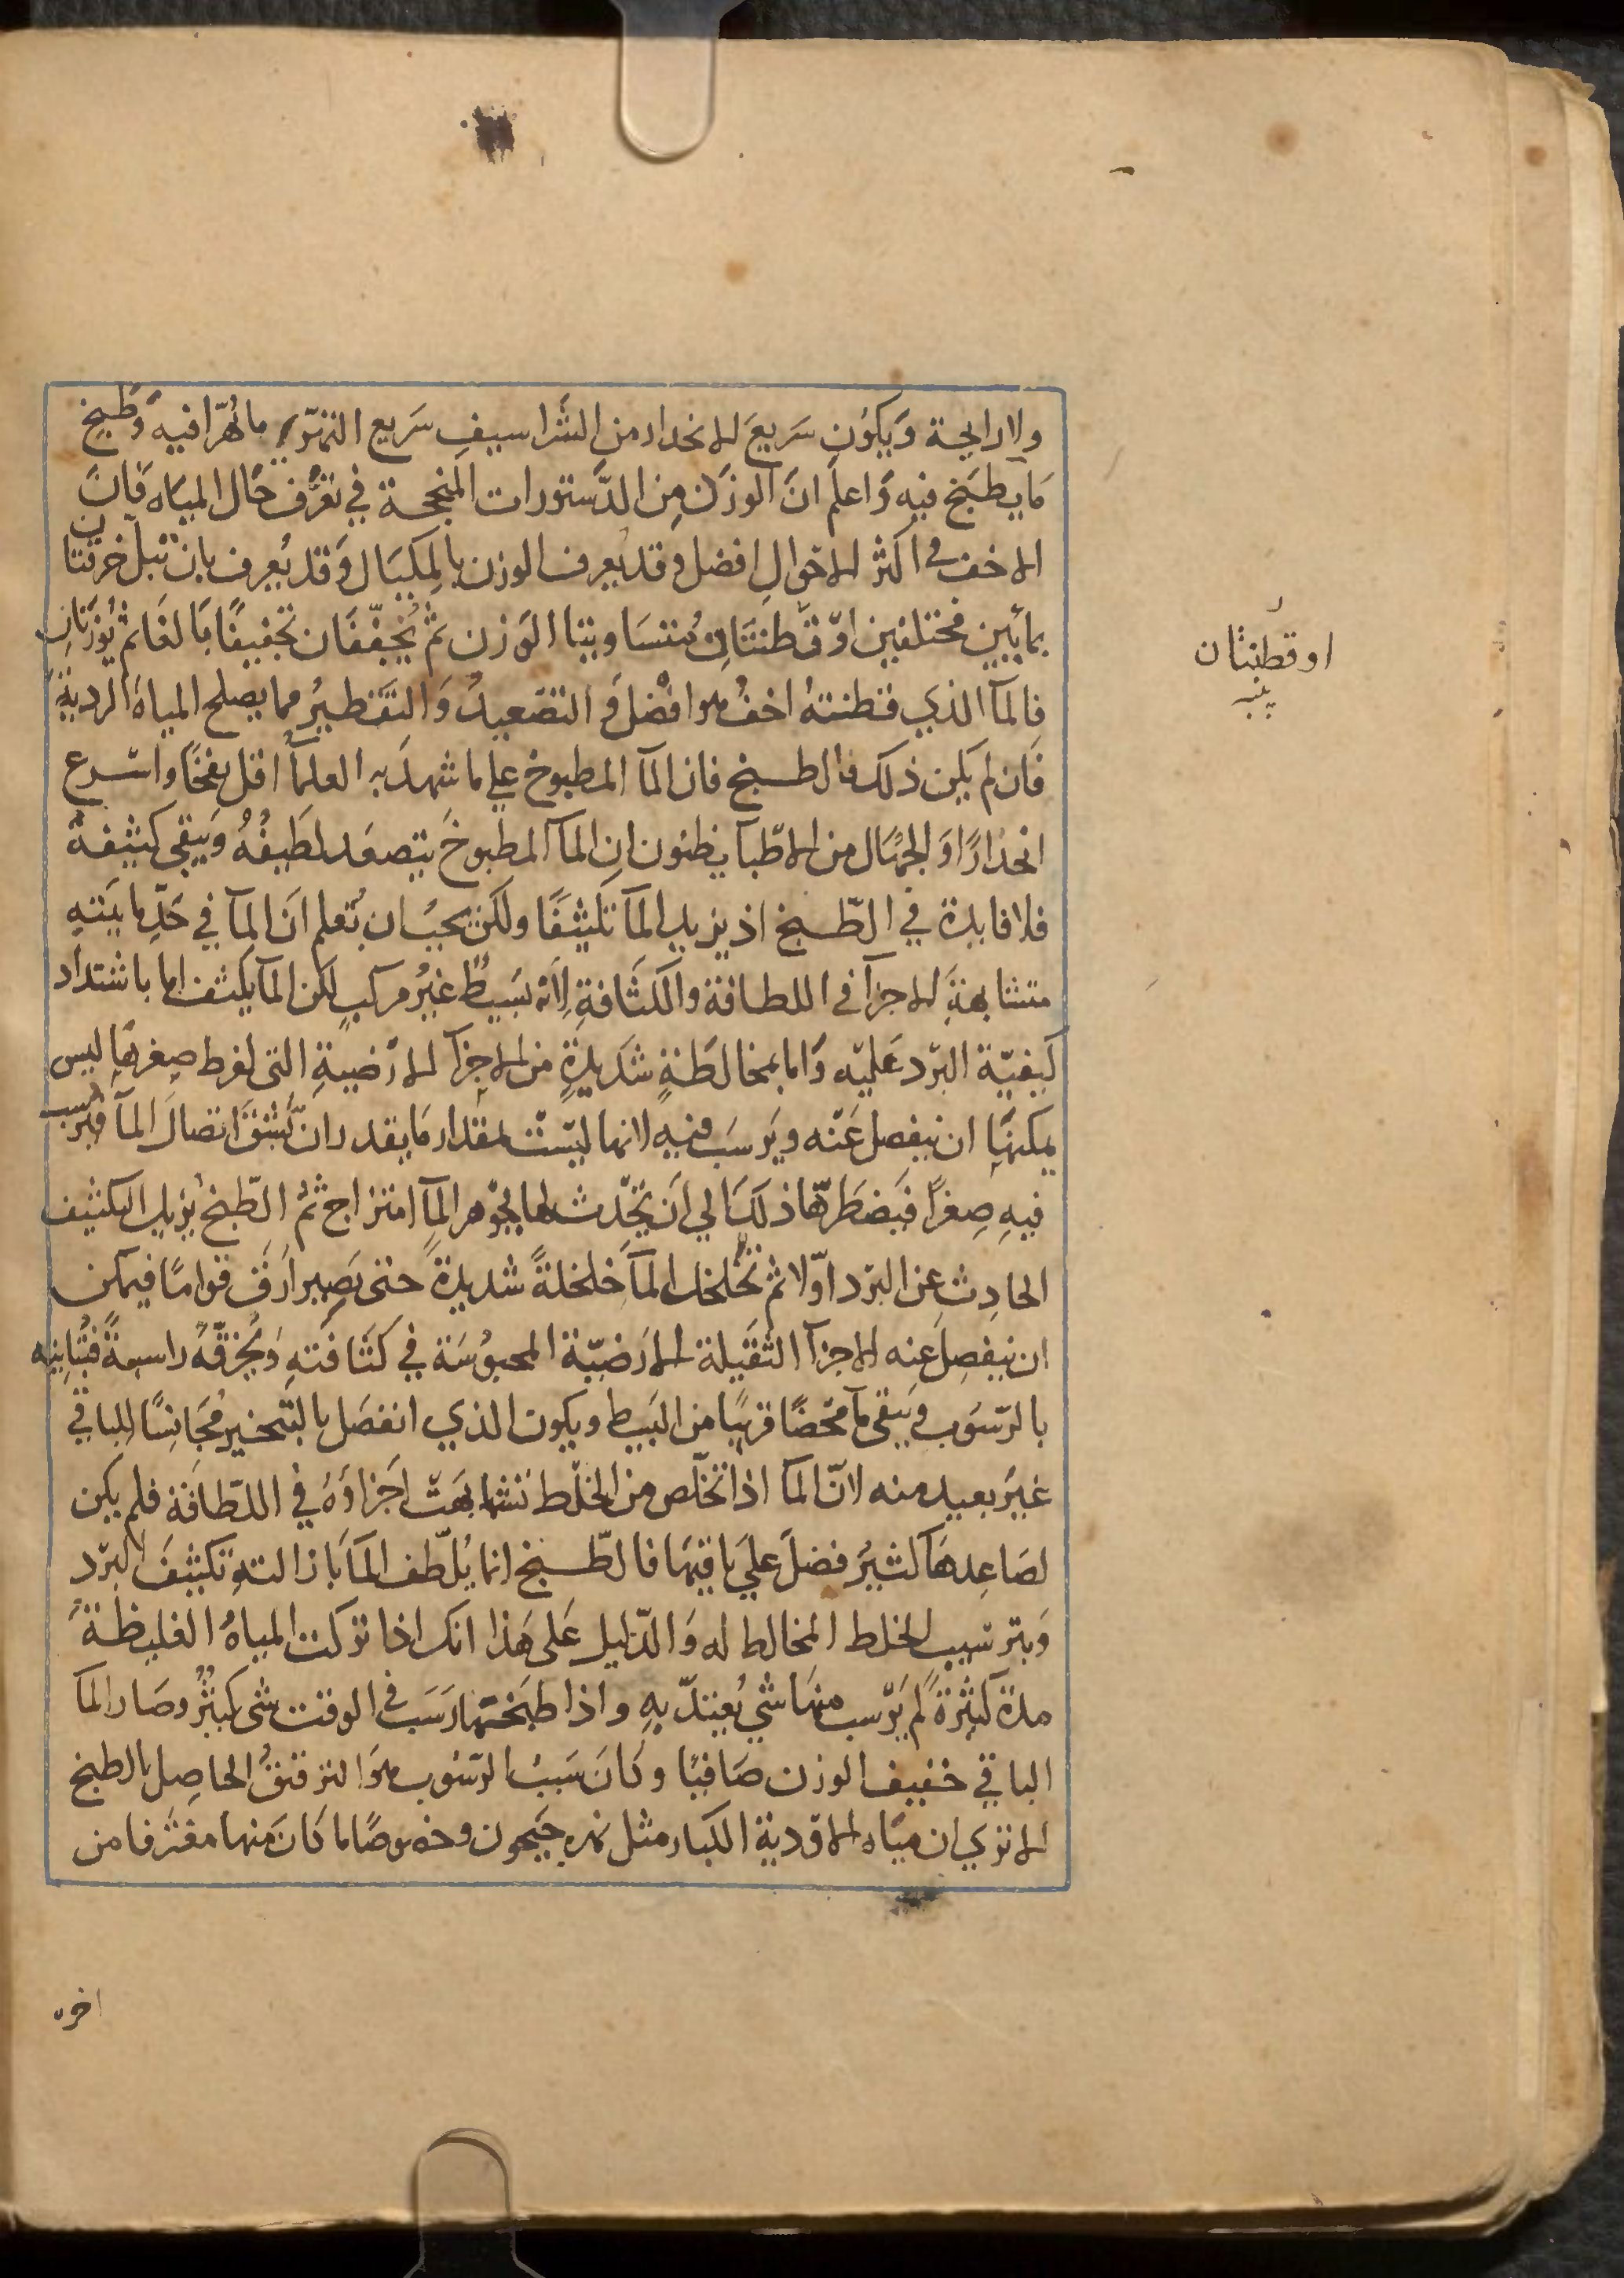 ولا رايحة وَيكوُن سَريعَ الانحدار من الشَراسيفِ سَريع التهرّي ما تُهرّا فيه وَطبخِ
مَا يطبَخ فيه وَاعلم انَ الوزن مِن الدَّستورات المنجحة في تعَرُّف حَال المياه فانَ
الاخف في اكثر الاحوَالِ افضل وقد يعرف الوزن بالمِكيَال وَقد يُعرف بان تُبلّ خرقتان
بمايين مختلفين اوْ قطنتَان مُتسَاويتا الوَزن ثمّ يُجفّفان تجفيفًا بَالغًا ثمْ يُوزَنانِ
فالمآ الذي قطنتهُ اخفُ هو افضل وَ التصَعيدُ وَ التقَطيرُ مما يصلح المياهَ الرديةَ
فان لم يَكن ذلك فالطبخ فان المآ المطبوخ على ما شهدَ به العلمآ اقل نفخًا واسْرع
انحدَارًا وَ الجهَّال من الاطّبآ يظنون ان المآ المطبوخَ يتصعَد لطَيفُهُ وَيبقى كثيفهُ
فلا فايدة في الطّبخ اذ يزيد المآ تكثيفًا ولكن يجبُ ان تُعلم انَ المآ في حَدّ مايّتهِ
متشابهةَ الاجزآ في اللطافة والكثَافةِ لِانّهُ بسَيطٌ غيرُ مركبٍ لكن المآ يكثف اما باشتداد
كيفيّة البرْد عَليْه وَاما بمخالطَةٍ شدَيدةٍ من الاجزآ الارْضيةِ التي لفرط صِغرهَا ليس
يمكنهَا ان ينفصل عَنْه ويَرسَب فيه لانها ليسْت بمقدار مَا يقدر ان تَشقّ اتصَال المآ فترسب
فيهِ صِغراً فيَضطرّها ذلكَ الى ان يَحْدث لها بجَوْهر المآ امتزاج ثمُ الطّبخُ يُزيل التكثيف
الحادِث عن البرْد اوّلا ثم يخُلخل المآ خلخلةً شديدةً حتى يَصِير ارَقّ قوامًا فيمكن
ان ينفصِل عنه الاجزآ الثقيلة الارَضيّة المحبوُسَة في كثَافتهِ وَيَخرقهُ راسبةً فتُباينهِ
بالرّسوُب وَيبقى مآ محْضًا قريبًا من البَسِيط ويكون الذي انفصَل بالتّبخير مُجَانِسًا للباقي
غيرَ بعيد منه لانّ المآ اذا تخلّص من الخلْط تشَابهَتْ اجَزاوهُ في اللطّافَة فلم يكن
لصَاعِدهَا كثيرُ فضل علىَ باقيهَا فالطّبخ انما يُلطّف المآ بَازالتهِ تكثيفَ البرْد
وَبترسيب الخلط المخالط له وَ الدّليل عَلى هَذا انك اذا تركت المياهُ الغليظةَ
مدة كثيرةً لم يَرْسب منهَا شي يُعتدّ بهِ واذا طبَختها رَسَبَ في الوقت شى كثيرٌ وصَار المآ
الباقي خفيف الوزن صَافيًا وكانَ سَببُ الرّسوُب هوَ الترقيقُ الحاصِل بالطبخ
الا تري ان ميَاه الاوْدية الكبار مثل نهرِ جَيحون وخصوصًا ما كانَ منها مغترفا من
او قطنتان
اخره